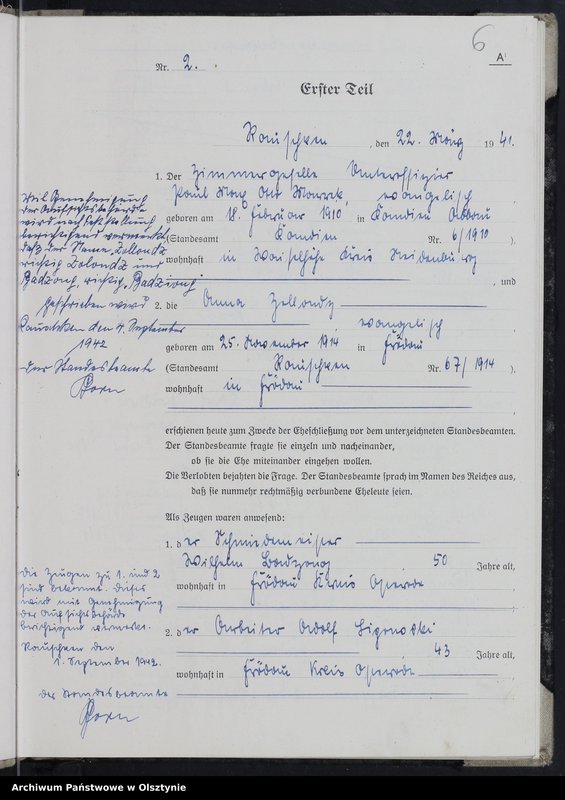 6
A¹
Nr. 2.
Erster Teil
Rauschken, den 22. März 1941.
1. Der Zimmergeselle Unteroffizier
Paul Max Otto, evangelisch
geboren am 18. Februar 1910 in Kandien
(Standesamt Kandien Nr. 6/1910 ).
wohnhaft in Kreis Neidenburg
, und
2. die Anna Zollondz
, evangelisch
geboren am 25. November 1914 in Frödau
(Standesamt Rauschken Nr. 67/1914 ).
wohnhaft in Frödau
erschienen heute zum Zwecke der Eheschließung vor dem unterzeichneten Standesbeamten.
Der Standesbeamte fragte sie einzeln und nacheinander,
ob sie die Ehe miteinander eingehen wollen.
Die Verlobten bejahten die Frage. Der Standesbeamte sprach im Namen des Reiches aus,
daß sie nunmehr rechtmäßig verbundene Eheleute seien.
Als Zeugen waren anwesend:
1. der Schmiedemeister
Wilhelm Badzong, 50 Jahre alt,
wohnhaft in Frödau Kreis Osterode
2. der Arbeiter Adolf
, 43 Jahre alt,
wohnhaft in Frödau Kreis Osterode
Mit Genehmigung
der Aufsichtsbehörde
wird
berichtigend vermerkt,
daß der Name Zollondz
richtig Zolondz und
Badzong, richtig, Badziong
geschrieben wird
Rauschken den 4. September
1942
Der Standesbeamte
Die Zeugen zu 1. und 2
sind bekannt. Dieses
wird mit Genehmigung
der Aufsichtsbehörde
berichtigend vermerkt.
Rauschken den
1. September 1942.
Der Standesbeamte
Archiwum Państwowe w Olsztynie